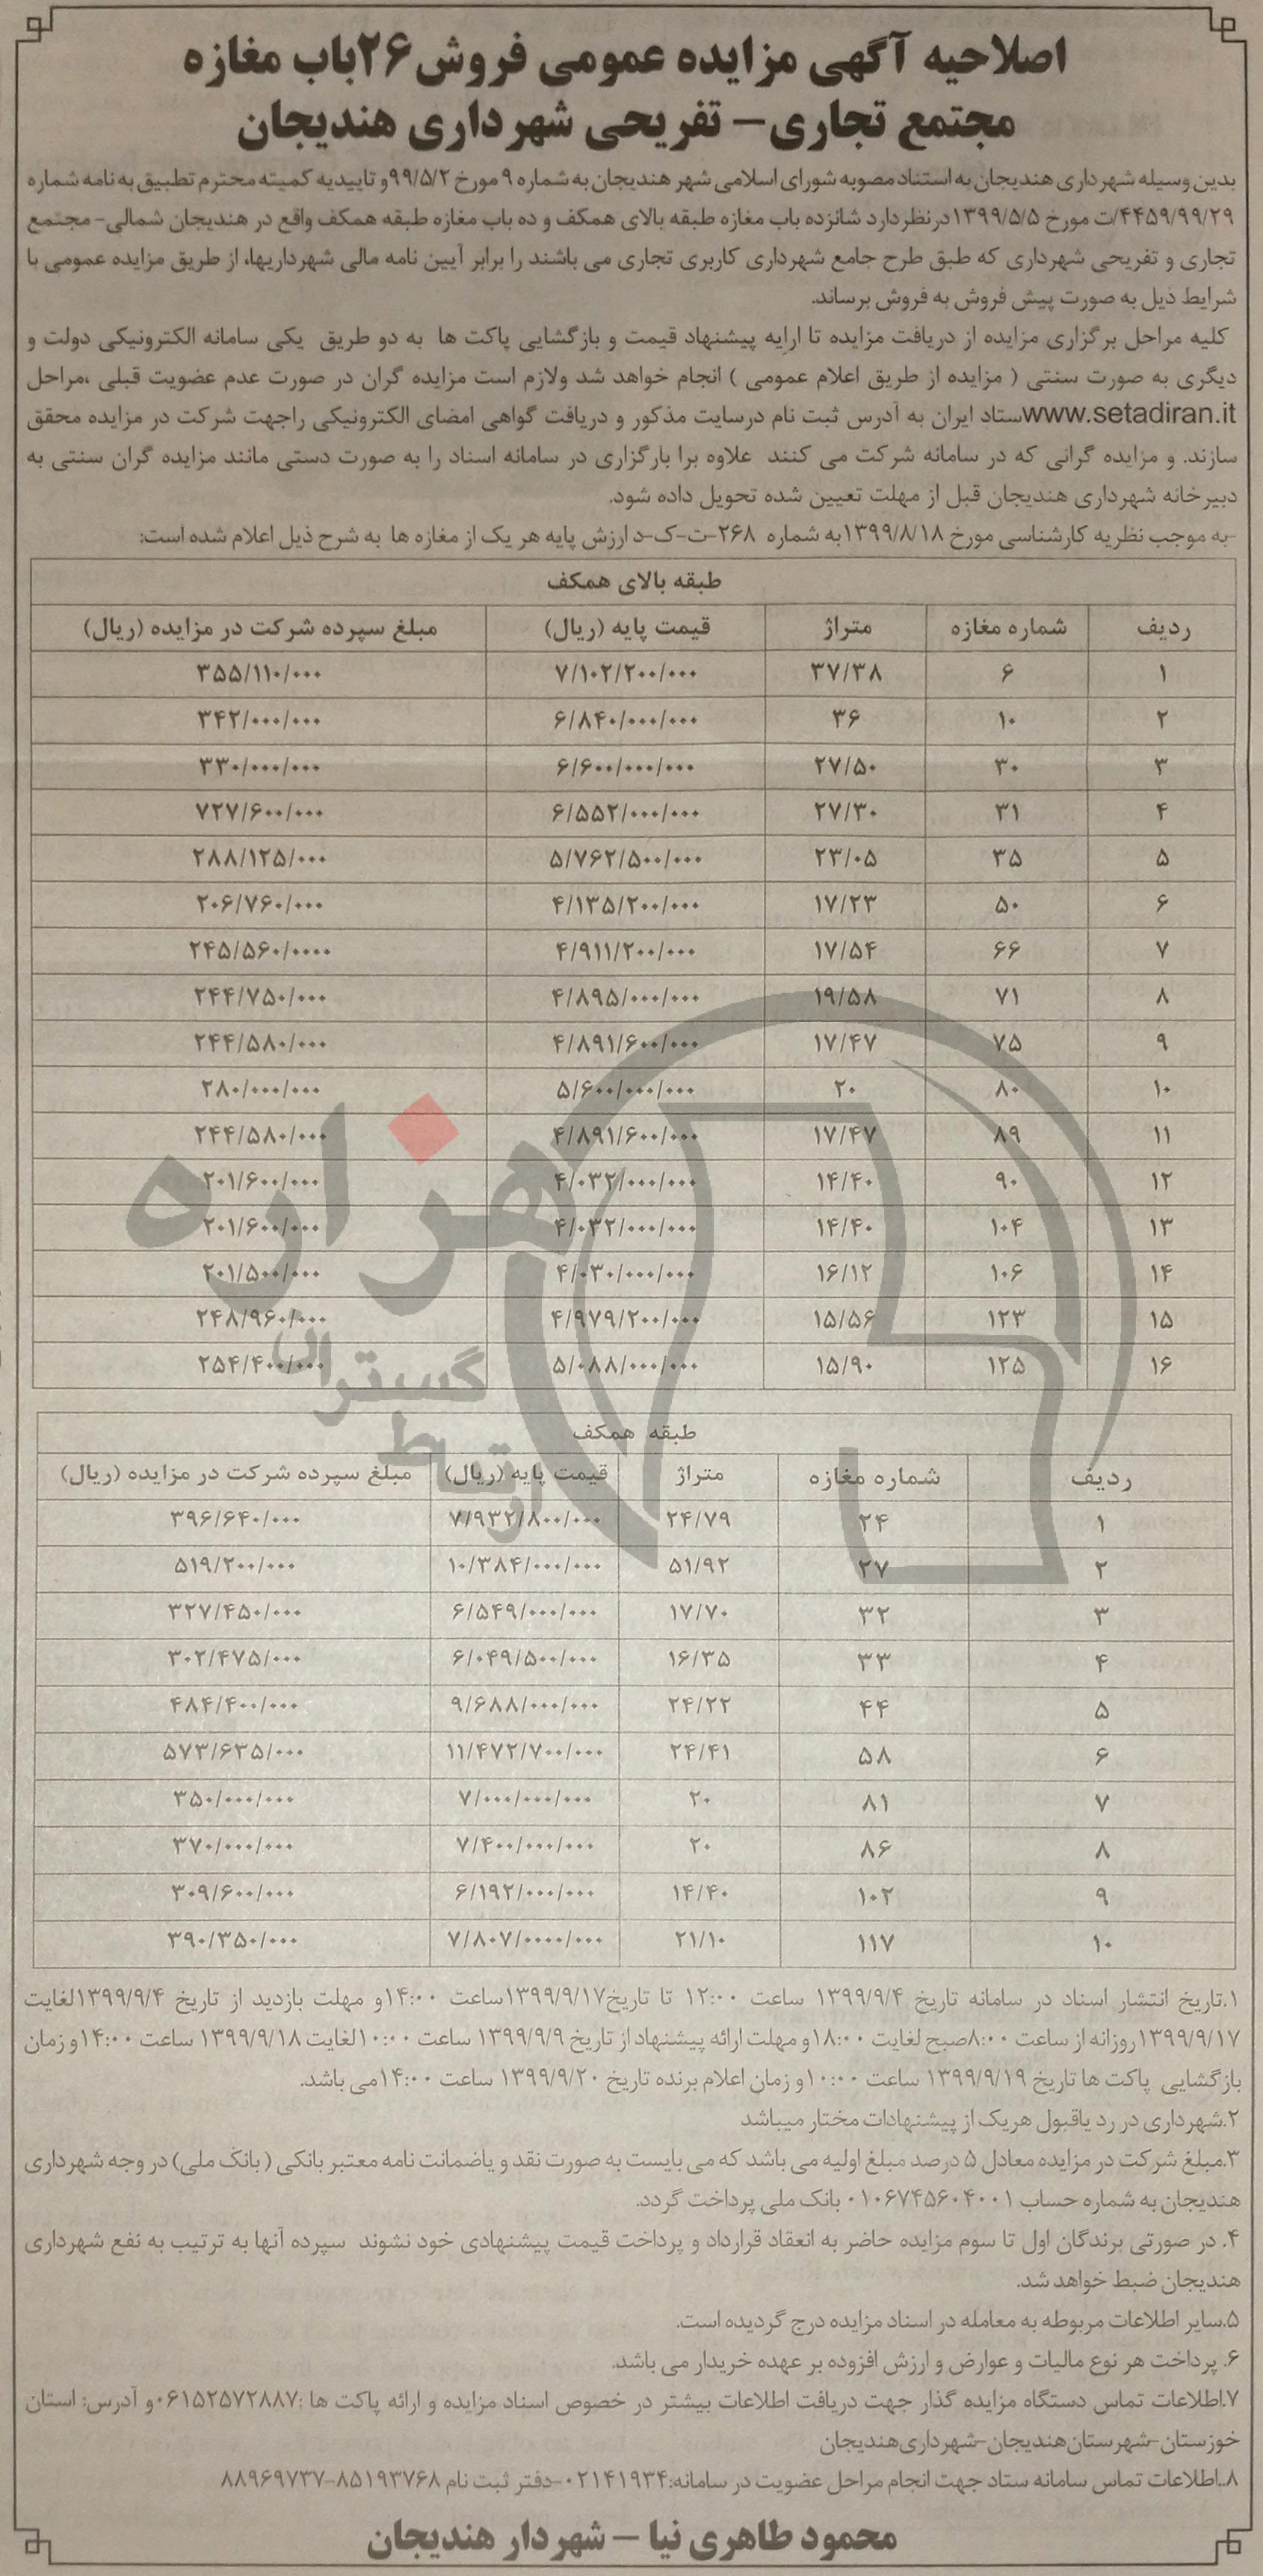 اصلاحیه آگهی مزایده عمومی فروش ۲۶باب مغازه
مجتمع تجاری– تفریحی شهرداری هندیجان
بدین وسیله شهرداری هندیجان به استناد مصوبه شورای اسلامی شهر هندیجان به شماره ۹ مورخ ۹۹/۵/۲و تاییدیه کمیته محترم تطبیق به نامه شماره
۴۴۵۹/۹۹/۲۹/ت مورخ ۱۳۹۹/۵/۵درنظردارد شانزده باب مغازه طبقه بالای همکف و ده باب مغازه طبقه همکف واقع در هندیجان شمالی– مجتمع
تجاری و تفریحی شهرداری که طبق طرح جامع شهرداری کاربری تجاری می باشند را برابر آیین نامه مالی شهرداریها، از طریق مزایده عمومی با
شرایط ذیل به صورت پیش فروش به فروش برساند.
کلیه مراحل برگزاری مزایده از دریافت مزایده تا ارایه پیشنهاد قیمت و بازگشایی پاکت ها به دو طریق یکی سامانه الکترونیکی دولت و
دیگری به صورت سنتی ( مزایده از طریق اعلام عمومی ) انجام خواهد شد ولازم است مزایده گران در صورت عدم عضویت قبلی ،مراحل
www.setadiran.itستاد ایران به آدرس ثبت نام درسایت مذکور و دریافت گواهی امضای الکترونیکی راجهت شرکت در مزایده محقق
سازند. و مزایده گرانی که در سامانه شرکت می کنند علاوه برا بارگزاری در سامانه اسناد را به صورت دستی مانند مزایده گران سنتی به
دبیرخانه شهرداری هندیجان قبل از مهلت تعیین شده تحویل داده شود.
-به موجب نظریه کارشناسی مورخ ۱۳۹۹/۸/۱۸به شماره ۲۶۸–ت–ک–د ارزش پایه هر یک از مغازه ها به شرح ذیل اعلام شده است:
طبقه بالای همکف
ردیف شماره مغازه متراژ قیمت پایه (ریال) مبلغ سپرده شرکت در مزایده (ریال)
۱ ۶ ۳۷/۳۸ ۷/۱۰۲/۲۰۰/۰۰۰ ۳۵۵/۱۱۰/۰۰۰
۲ ۱۰ ۳۶ ۶/۸۴۰/۰۰۰/۰۰۰ ۳۴۲/۰۰۰/۰۰۰
۳ ۳۰ ۲۷/۵۰ ۶/۶۰۰/۰۰۰/۰۰۰ ۳۳۰/۰۰۰/۰۰۰
۴ ۳۱ ۲۷/۳۰ ۶/۵۵۲/۰۰۰/۰۰۰ ۷۲۷/۶۰۰/۰۰۰
۵ ۳۵ ۲۳/۰۵ ۵/۷۶۲/۵۰۰/۰۰۰ ۲۸۸/۱۲۵/۰۰۰
۶ ۵۰ ۱۷/۲۳ ۴/۱۳۵/۲۰۰/۰۰۰ ۲۰۶/۷۶۰/۰۰۰
۷ ۶۶ ۱۷/۵۴ ۴/۹۱۱/۲۰۰/۰۰۰ ۲۴۵/۵۶۰/۰۰۰۰
۸ ۷۱ ۱۹/۵۸ ۴/۸۹۵/۰۰۰/۰۰۰ ۲۴۴/۷۵۰/۰۰۰
۹ ۷۵ ۱۷/۴۷ ۴/۸۹۱/۶۰۰/۰۰۰ ۲۴۴/۵۸۰/۰۰۰
۱۰ ۸۰ ۲۰ ۵/۶۰۰/۰۰۰/۰۰۰ ۲۸۰/۰۰۰/۰۰۰
۱۱ ۸۹ ۱۷/۴۷ ۴/۸۹۱/۶۰۰/۰۰۰ ۲۴۴/۵۸۰/۰۰۰
۱۲ ۹۰ ۱۴/۴۰ ۴/۰۳۲/۰۰۰/۰۰۰ ۲۰۱/۶۰۰/۰۰۰
۱۳ ۱۰۴ ۱۴/۴۰ ۴/۰۳۲/۰۰۰/۰۰۰ ۲۰۱/۶۰۰/۰۰۰
۱۴ ۱۰۶ ۱۶/۱۲ ۴/۰۳۰/۰۰۰/۰۰۰ ۲۰۱/۵۰۰/۰۰۰
۱۵ ۱۲۳ ۱۵/۵۶ ۴/۹۷۹/۲۰۰/۰۰۰ ۲۴۸/۹۶۰/۰۰۰
۱۶ ۱۲۵ ۱۵/۹۰ ۵/۰۸۸/۰۰۰/۰۰۰ ۲۵۴/۴۰۰/۰۰۰
هزاره
گستران
ارتباط
طبقه همکف
ردیف شماره مغازه متراژ قیمت پایه (ریال) مبلغ سپرده شرکت در مزایده (ریال)
۱ ۲۴ ۲۴/۷۹ ۷/۹۳۲/۸۰۰/۰۰۰ ۳۹۶/۶۴۰/۰۰۰
۲ ۲۷ ۵۱/۹۲ ۱۰/۳۸۴/۰۰۰/۰۰۰ ۵۱۹/۲۰۰/۰۰۰
۳ ۳۲ ۱۷/۷۰ ۶/۵۴۹/۰۰۰/۰۰۰ ۳۲۷/۴۵۰/۰۰۰
۴ ۳۳ ۱۶/۳۵ ۶/۰۴۹/۵۰۰/۰۰۰ ۳۰۲/۴۷۵/۰۰۰
۵ ۴۴ ۲۴/۲۲ ۹/۶۸۸/۰۰۰/۰۰۰ ۴۸۴/۴۰۰/۰۰۰
۶ ۵۸ ۲۴/۴۱ ۱۱/۴۷۲/۷۰۰/۰۰۰ ۵۷۳/۶۳۵/۰۰۰
۷ ۸۱ ۲۰ ۷/۰۰۰/۰۰۰/۰۰۰ ۳۵۰/۰۰۰/۰۰۰
۸ ۸۶ ۲۰ ۷/۴۰۰/۰۰۰/۰۰۰ ۳۷۰/۰۰۰/۰۰۰
۹ ۱۰۲ ۱۴/۴۰ ۶/۱۹۲/۰۰۰/۰۰۰ ۳۰۹/۶۰۰/۰۰۰
۱۰ ۱۱۷ ۲۱/۱۰ ۷/۸۰۷/۰۰۰۰/۰۰۰ ۳۹۰/۳۵۰/۰۰۰
۱.تاریخ انتشار اسناد در سامانه تاریخ ۱۳۹۹/۹/۴ ساعت ۱۲:۰۰ تا تاریخ۱۳۹۹/۹/۱۷ساعت ۱۴:۰۰و مهلت بازدید از تاریخ ۱۳۹۹/۹/۴لغایت
۱۳۹۹/۹/۱۷روزانه از ساعت ۸:۰۰صبح لغایت ۱۸:۰۰و مهلت ارائه پیشنهاد از تاریخ ۱۳۹۹/۹/۹ ساعت ۱۰:۰۰لغایت ۱۳۹۹/۹/۱۸ ساعت ۱۴:۰۰و زمان
بازگشایی پاکت ها تاریخ ۱۳۹۹/۹/۱۹ ساعت ۱۰:۰۰و زمان اعلام برنده تاریخ ۱۳۹۹/۹/۲۰ ساعت ۱۴:۰۰می باشد.
۲.شهرداری در رد یاقبول هریک از پیشنهادات مختار میباشد
۳.مبلغ شرکت در مزایده معادل ۵ درصد مبلغ اولیه می باشد که می بایست به صورت نقد و یاضمانت نامه معتبر بانکی ( بانک ملی) در وجه شهرداری
هندیجان به شماره حساب ۰۱۰۶۷۴۵۶۰۴۰۰۱ بانک ملی پرداخت گردد.
۴. در صورتی برندگان اول تا سوم مزایده حاضر به انعقاد قرارداد و پرداخت قیمت پیشنهادی خود نشوند سپرده آنها به ترتیب به نفع شهرداری
هندیجان ضبط خواهد شد.
۵.سایر اطلاعات مربوطه به معامله در اسناد مزایده درج گردیده است.
۶. پرداخت هر نوع مالیات و عوارض و ارزش افزوده بر عهده خریدار می باشد.
۷.اطلاعات تماس دستگاه مزایده گذار جهت دریافت اطلاعات بیشتر در خصوص اسناد مزایده و ارائه پاکت ها :۰۶۱۵۲۵۷۲۸۸۷و آدرس: استان
خوزستان–شهرستان‌هندیجان–شهرداری‌هندیجان
۸.اطلاعات تماس سامانه ستاد جهت انجام مراحل عضویت در سامانه:۰۲۱۴۱۹۳۴–دفتر ثبت نام ۸۵۱۹۳۷۶۸–۸۸۹۶۹۷۳۷
محمود طاهری نیا – شهردار هندیجان